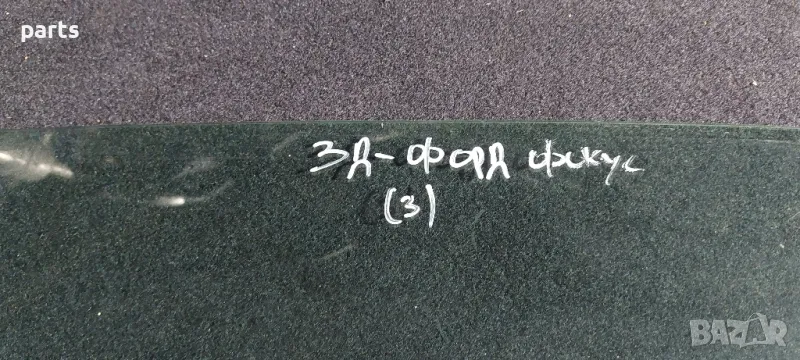 parts
ЗД-форд фокус
(3)
BAZAR